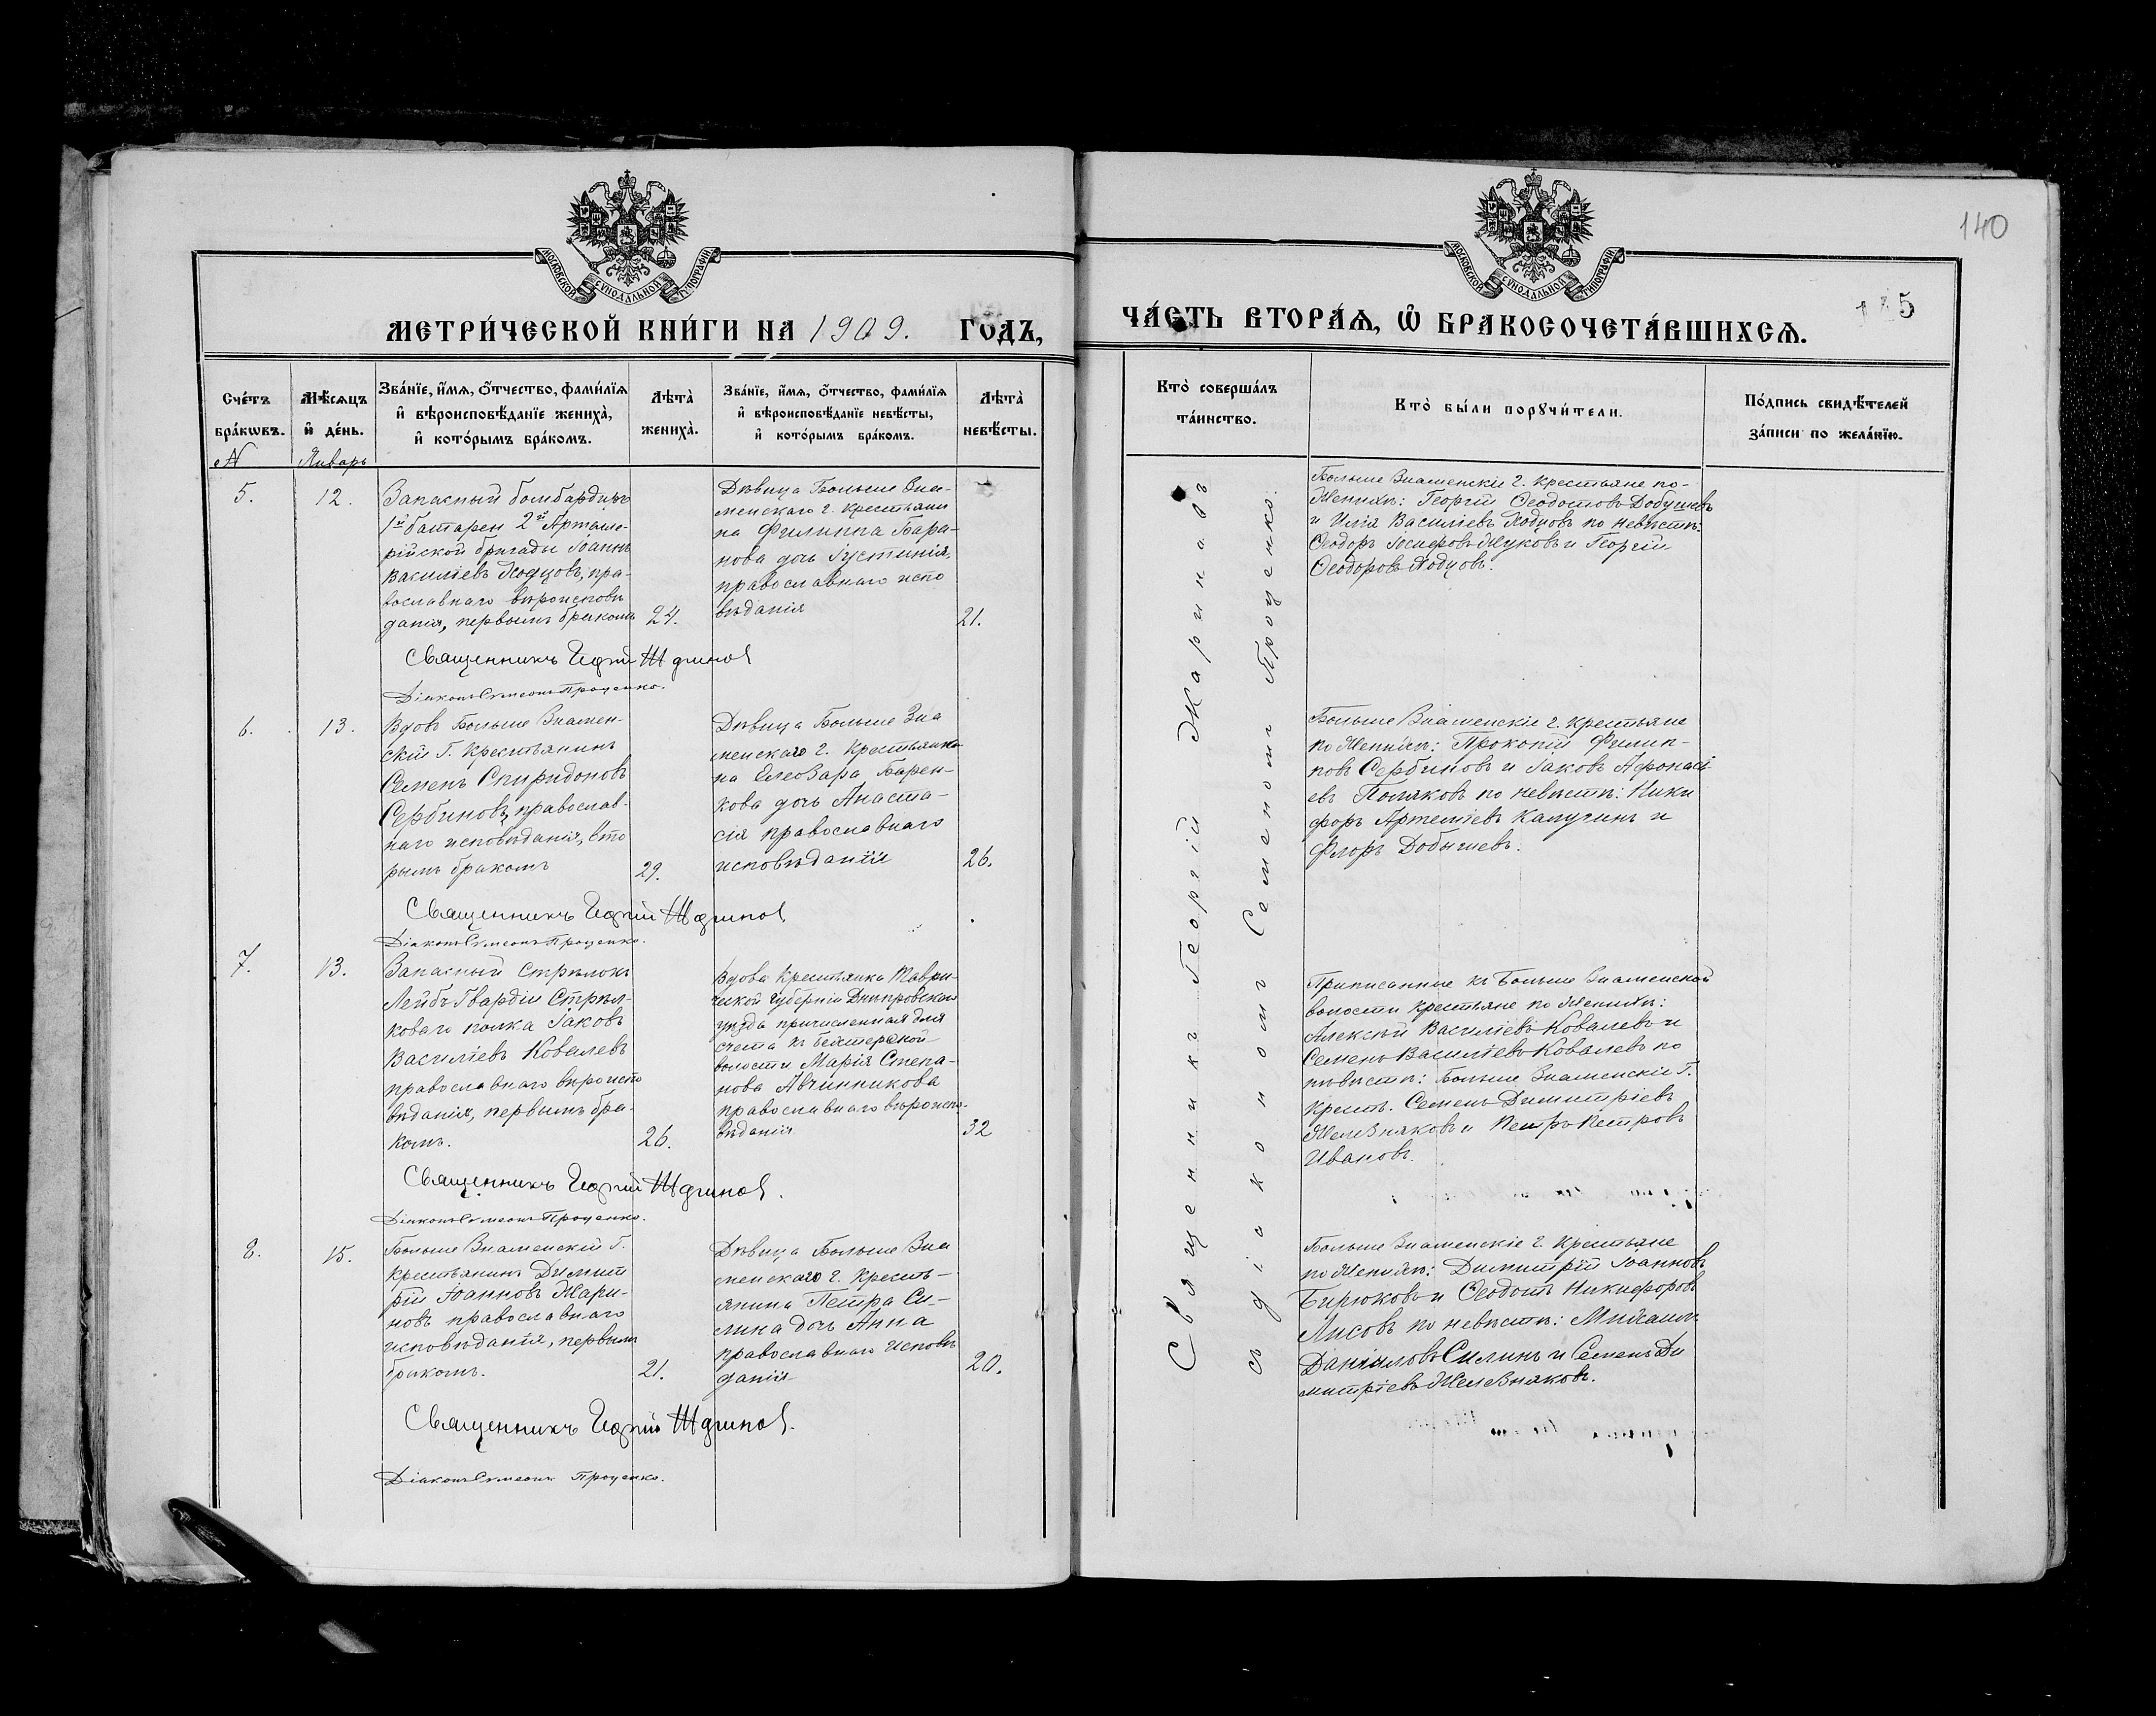 МОСКОВСКОЙ СУНОДАЛЬНОЙ ТИПОГРАФІИ
МЕТРИ́ЧЕСКОЙ КНИ́ГИ НА 1909. ГОДЪ,
Сче́тъ бра́кѡвъ.
Мѣ́сяцъ и҆ де́нь.
Зва́нїе, и҆́мѧ, ѻ҆́тчество, фами́лїѧ
и҆ вѣроисповѣ́данїе жениха̀,
и҆ кото́рымъ бра́комъ.
Лѣта̀ жениха̀.
Зва́нїе, и҆́мѧ, ѻ҆́тчество, фами́лїѧ
и҆ вѣроисповѣ́данїе невѣ́сты,
и҆ кото́рымъ бра́комъ.
Лѣта̀ невѣ́сты.
N
Январь
5.
12.
Запасный бомбардиръ
1й батареи 2й Артилле-
рійской бригады Іоаннъ
Василіевъ Ходцовъ, пра-
вославнаго вѣроисповѣ
данія, первымъ бракомъ
24.
Дѣвица Больше Зна-
менскаго г. крестьяни
на Филиппа Бара-
нова дочь Іустинія,
православнаго испо
вѣданія
21.
Священникъ Георгій Жариновъ
Діаконъ Симеонъ Проценко.
6.
13.
Вдовъ Больше Знамен-
скій г. крестьянинъ
Семенъ Спиридоновъ
Сербиновъ, православ-
наго исповѣданія, вто
рымъ бракомъ
29.
Дѣвица Больше Зна
менскаго г. крестьяни
на Елеазара Барен-
кова дочь Анаста-
сія православнаго
исповѣданія
26.
Священникъ Георгій Жариновъ
Діаконъ Симеонъ Проценко.
7.
13.
Запасный стрѣлокъ
Лейбъ Гвардіи Стрѣл-
коваго полка Іаковъ
Василіевъ Ковалевъ
православнаго вѣроиспо
вѣданія, первымъ бра-
комъ.
26.
Вдова крестьянка Таври-
ческой губерніи Днѣпровскаго
уѣзда причисленная для
счета къ
волости Марія Степа-
нова Авчинникова
православнаго вѣроиспо-
вѣданія
32
Священникъ Георгій Жариновъ.
Діаконъ Симеонъ Проценко.
8.
15.
Больше Знаменскій г.
крестьянинъ Димит
рій Іоанновъ Жари-
новъ православнаго
исповѣданія, первымъ
бракомъ.
21.
Дѣвица Больше Зна
менскаго г. кресть-
янина Петра Си-
лина дочь Анна
православнаго исповѣ
данія
20.
Священникъ Георгій Жариновъ.
Діаконъ Симеонъ Проценко.
140
МОСКОВСКОЙ СУНОДАЛЬНОЙ ТИПОГРАФІИ
5
ЧА́СТЬ ВТОРА́Ѧ, Ѽ БРАКОСОЧЕТА́ВШИХСѦ.
Кто̀ соверша́лъ
та́инство.
Кто̀ бы́ли порꙋчи́тели.
По́дпись свидѣ́телей
за́писи по жела́нїю.
Священникъ Георгій Жариновъ
съ діакономъ Семеномъ Проценко.
Больше Знаменскіе г. крестьяне по-
женихѣ: Георгій Ѳеодотовъ Добушевъ
и Илія Василіевъ Ходцовъ по невѣстѣ:
Ѳеодоръ Іосифовъ Жуковъ и Георгій
Ѳеодоровъ Ходцовъ.
Больше Знаменскіе г. крестьяне
по женихѣ: Прокопій Филип-
повъ Сербиновъ и Іаковъ Афонасі-
евъ Поляковъ по невѣстѣ: Ники
форъ Артеміевъ Калугинъ и
Флоръ Добышевъ.
Приписанные къ Больше Знаменской
волости крестьяне по женихѣ:
Алексѣй Василіевъ Ковалевъ и
Семенъ Василіевъ Ковалевъ по
невѣстѣ: Больше Знаменскіе г.
крест. Семенъ Димитріевъ
Железняковъ и Петръ Петровъ
Ивановъ.
Больше Знаменскіе г. крестьяне
по женихѣ: Димитрій Іоанновъ
Бирюковъ и Ѳеодотъ Никифоровъ
Лисовъ по невѣстѣ: Михаилъ
Даніиловъ Силинъ и Семенъ Ди
митріевъ Железняковъ.